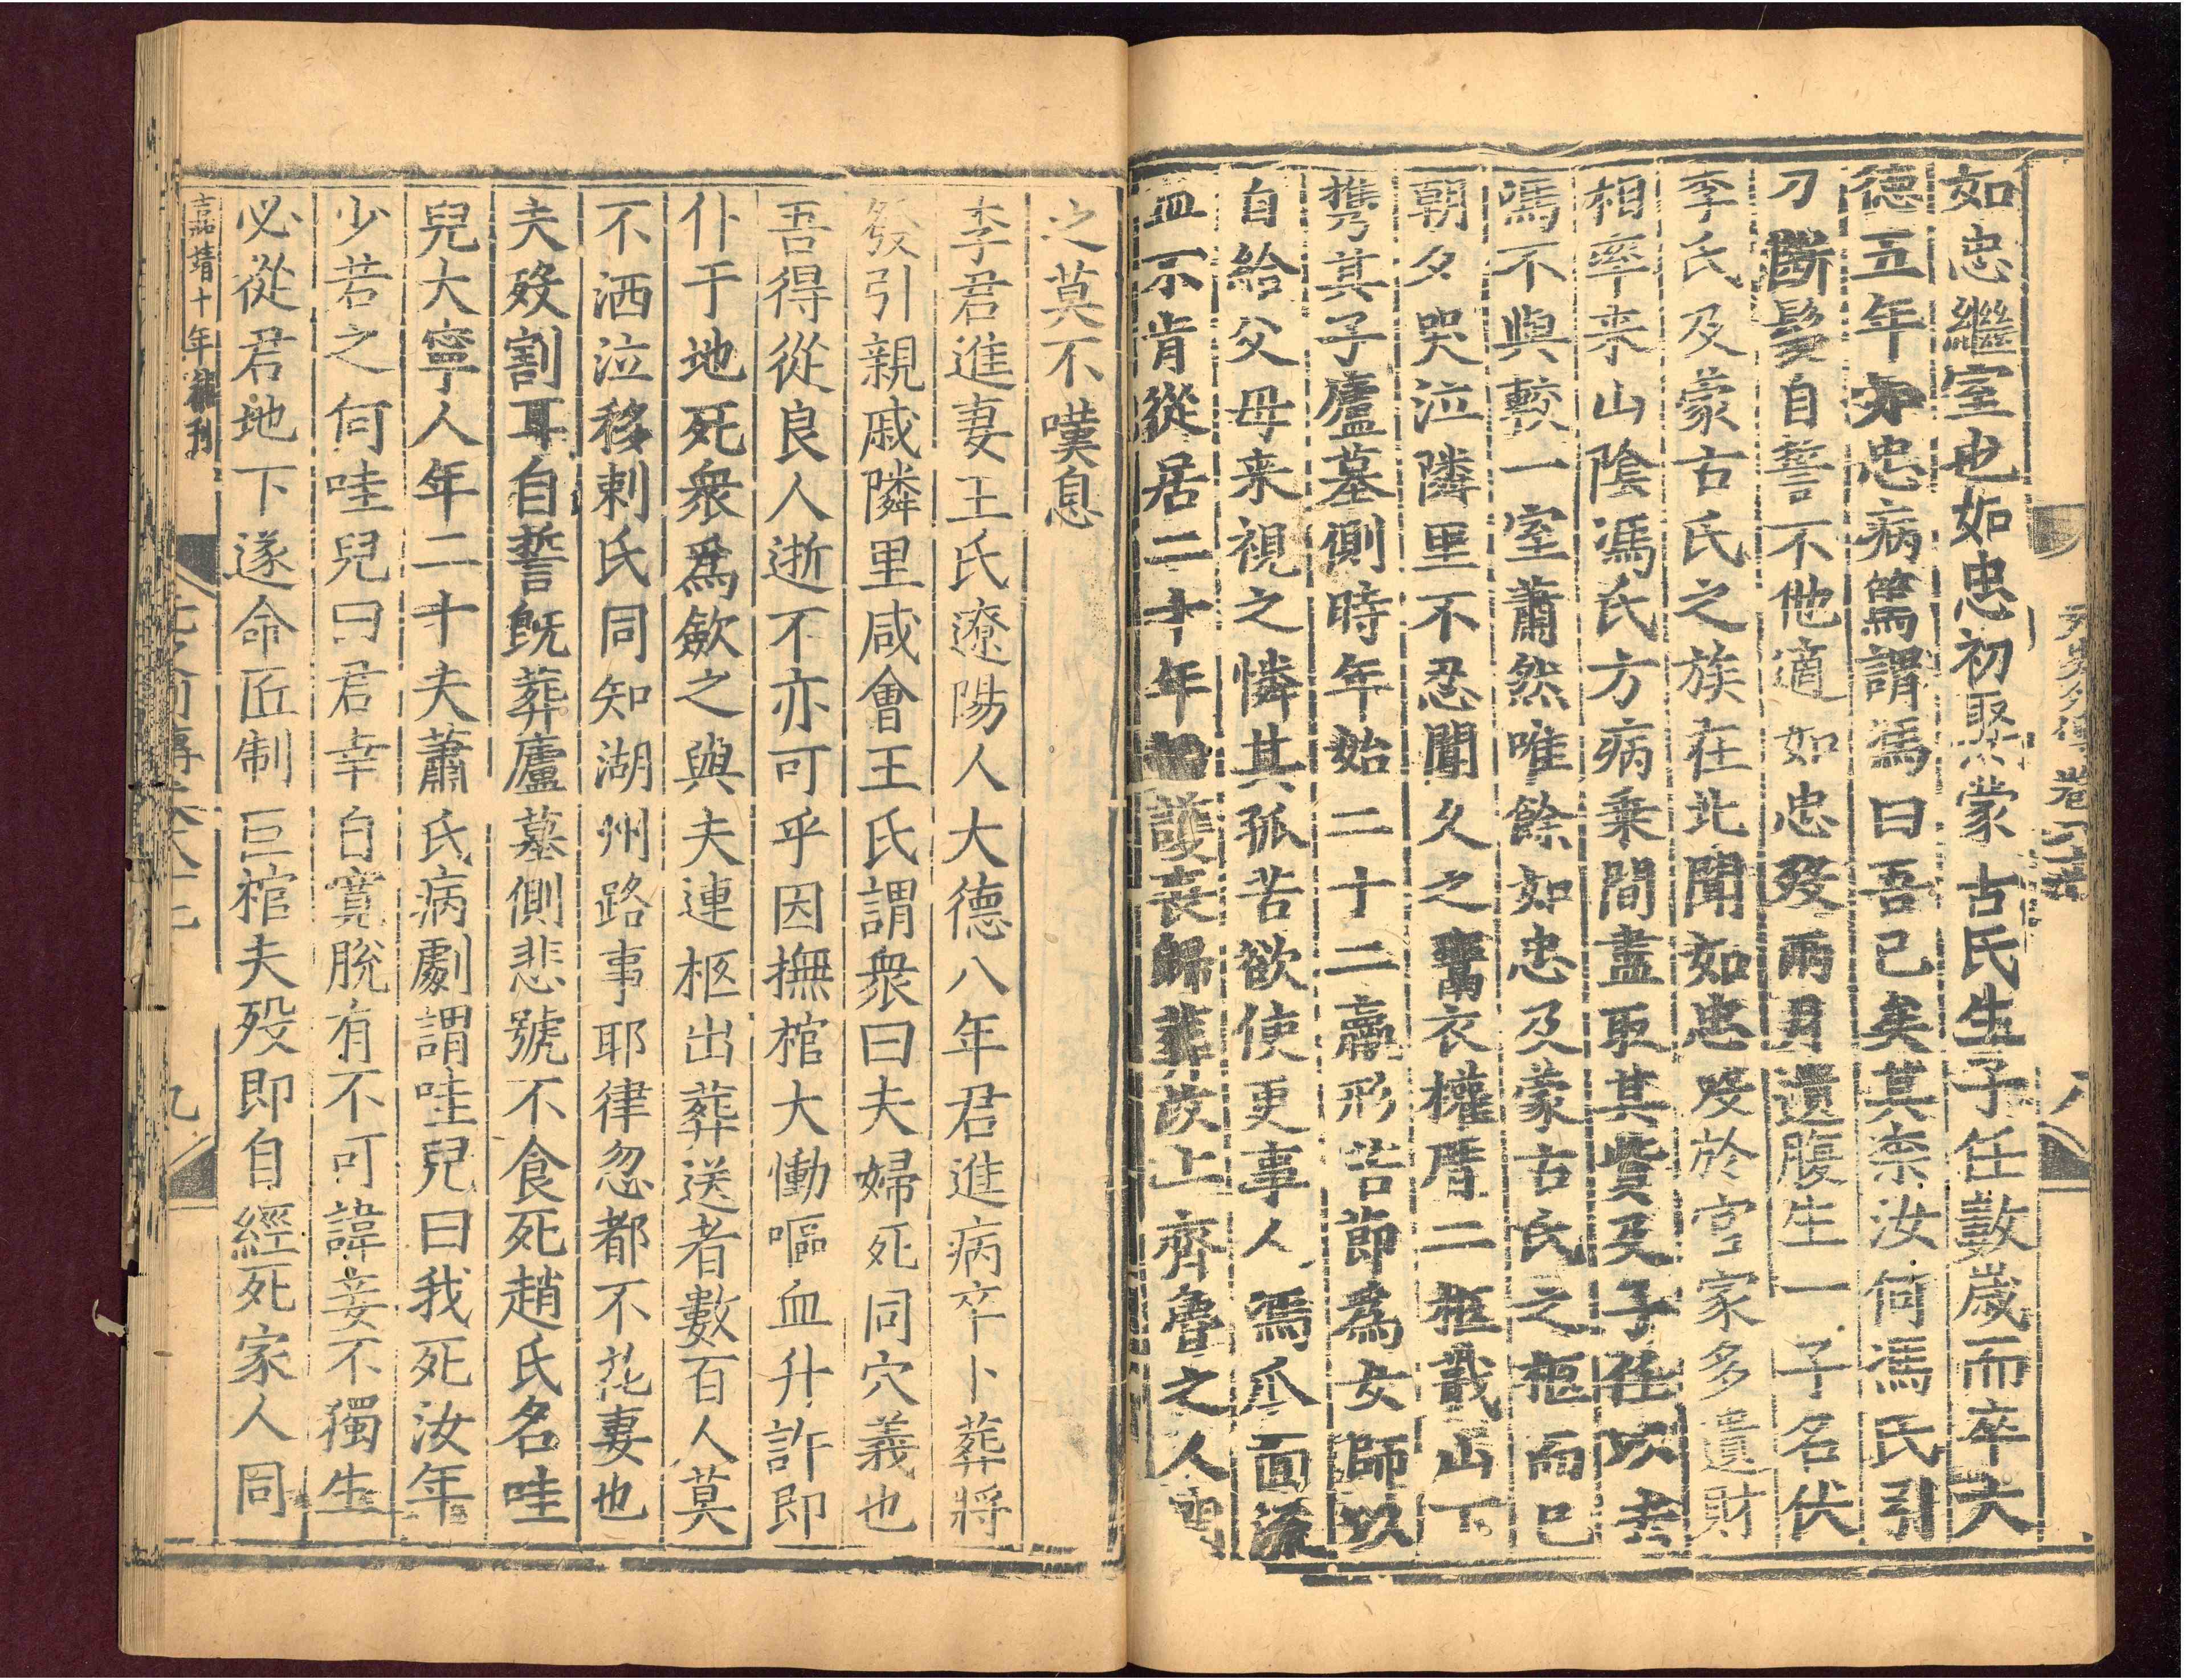 如忠繼室也如忠初娶蒙古氏生子任數歲而卒大
德五年如忠病篤謂馮曰吾已矣其柰汝何馮氏引
刀斷髮自誓不他適如忠歿兩月遺腹生一子名伏
李氏及蒙古氏之族在北聞如忠歿於官家多遺財
相率來山陰馮氏方病乗間盡取其貲及子任以去
馮不與較一室蕭然唯餘如忠及蒙古氏之柩而已
朝夕哭泣隣里不忍聞久之鬻衣權厝二柩蕺山下
携其子廬墓側時年始二十二羸形苦節爲女師以
自給父母来視之憐其孤苦欲使更事人馮爪面流
血不肯從居二十年始護喪歸葬汶上齊魯之人聞
之莫不嘆息
李君進妻王氏遼陽人大德八年君進病卒卜葬將
發引親戚隣里咸會王氏謂衆曰夫婦死同穴義也
吾得從良人逝不亦可乎因撫棺大慟嘔血升許即
仆于地死衆爲斂之與夫連柩出葬送者數百人莫
不洒泣移剌氏同知湖州路事耶律忽都不花妻也
夫歿割耳自誓既葬廬墓側悲號不食死趙氏名哇
兒大寧人年二十夫蕭氏病劇謂哇兒曰我死汝年
少若之何哇兒曰君幸自寬脫有不可諱妾不獨生
必從君地下遂命匠制巨棺夫歿即自經死家人同
嘉靖十年補刊
九